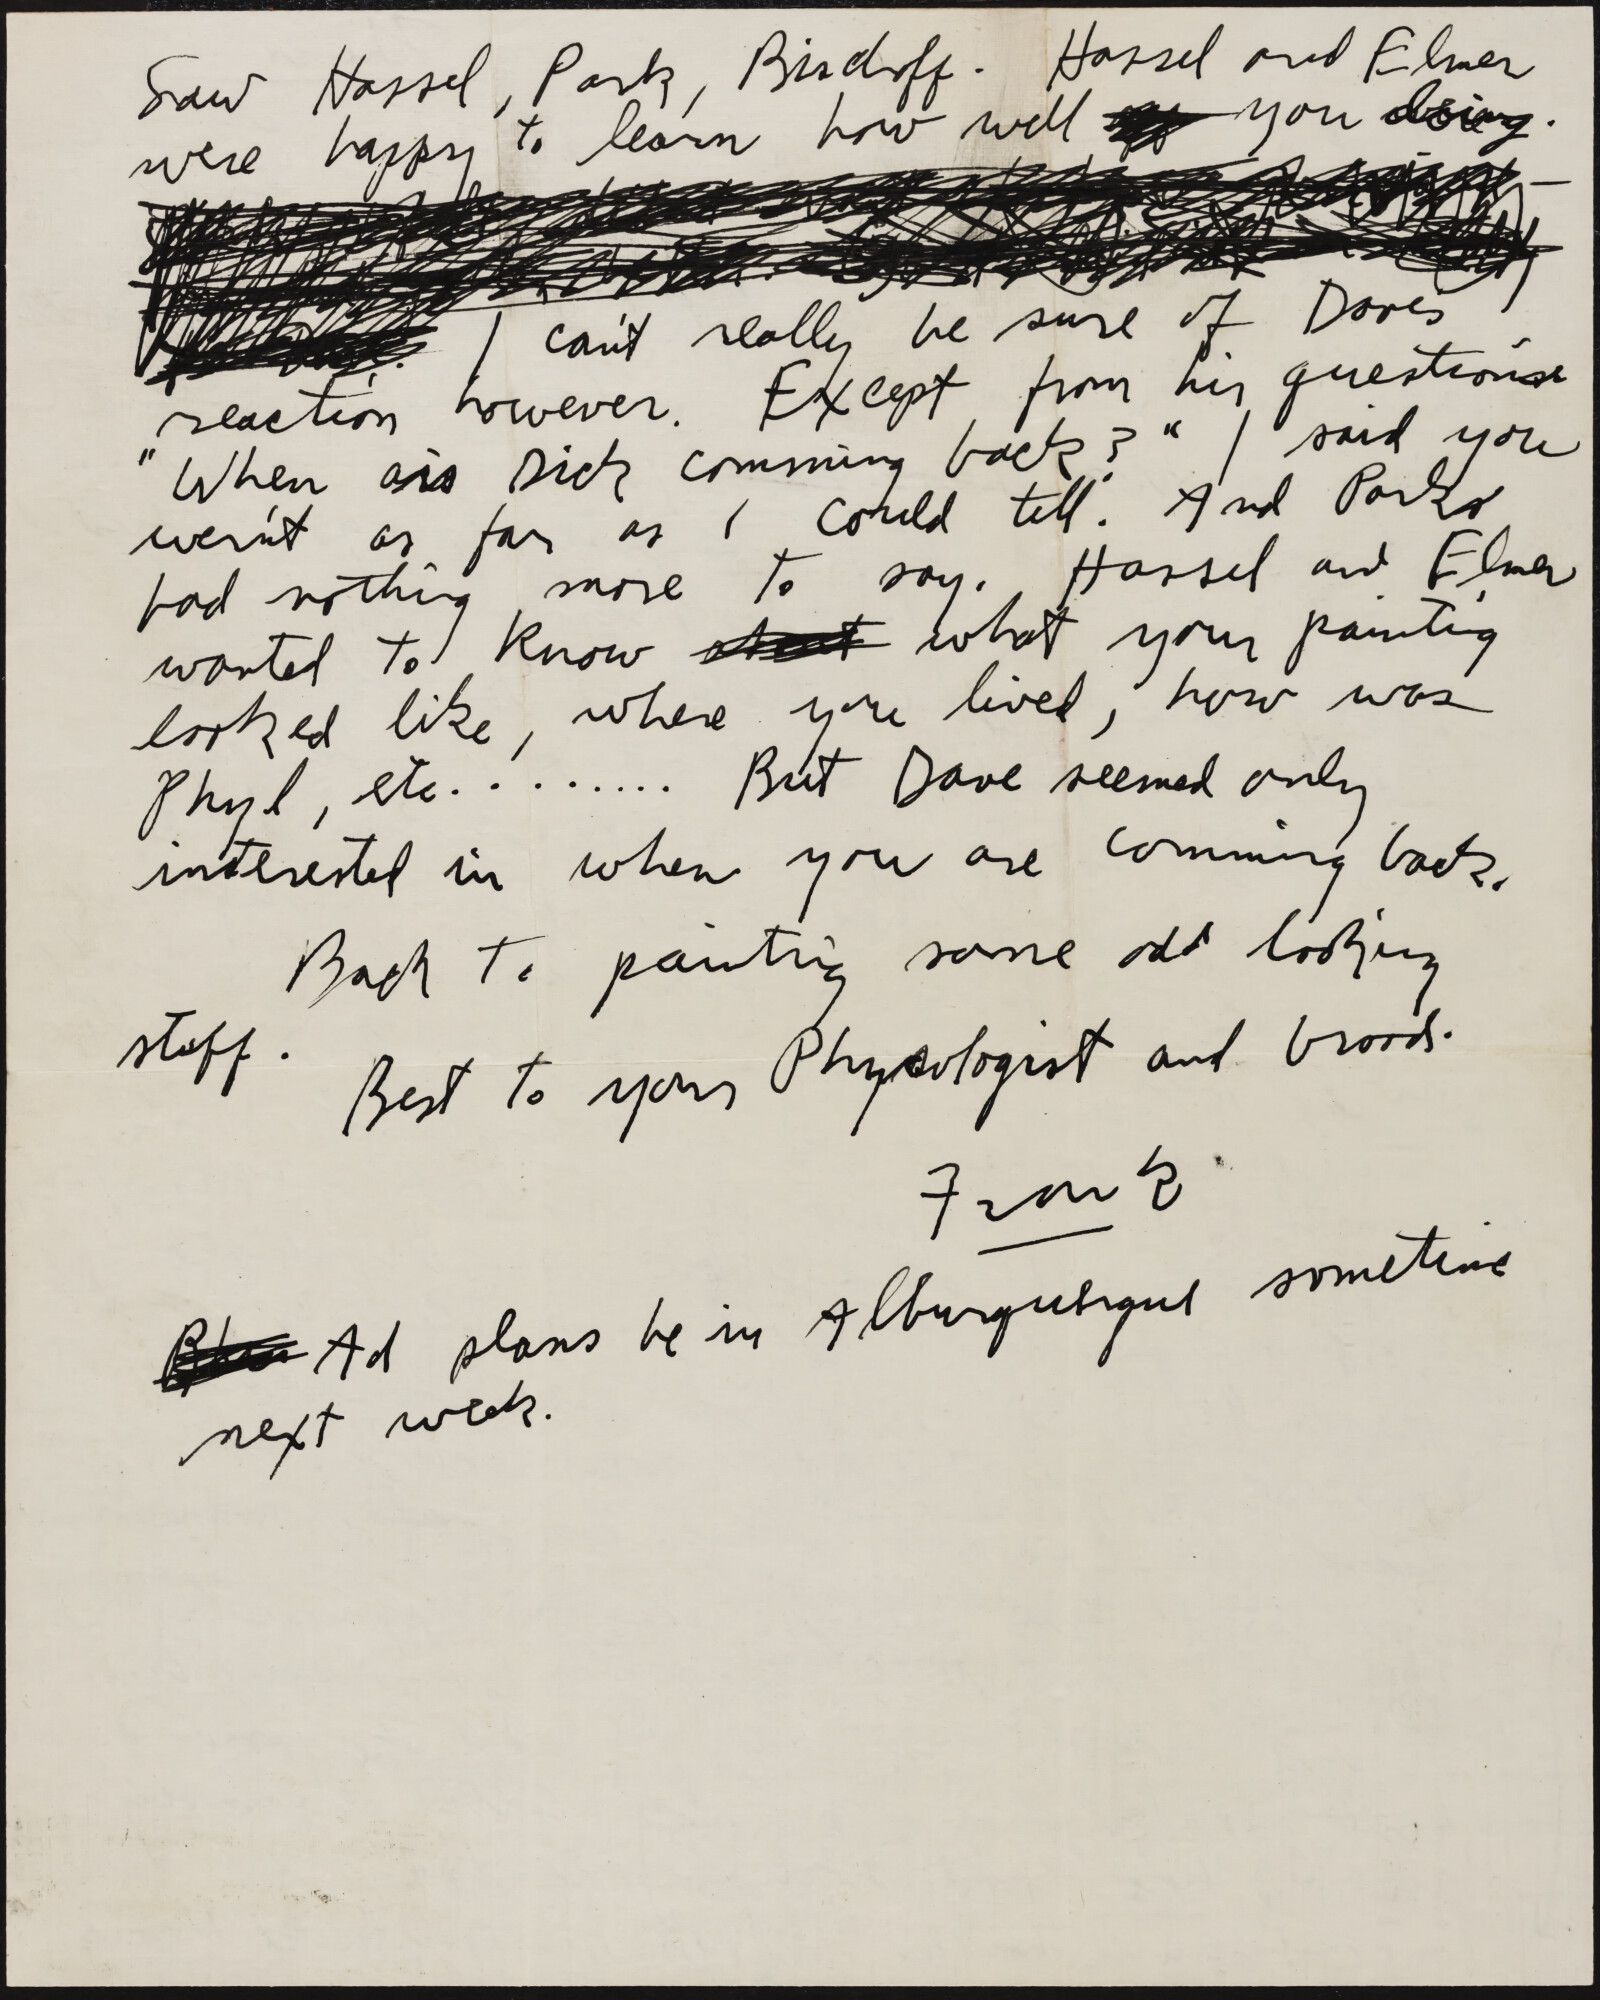 Saw Hassel, Park, Bischoff. Hassel and Elmer
were happy to learn how well you doing.
I can't really be sure of Daves
reaction however. Except from his questions
"When is Dick comming back?" I said you
wern't as far as I could tell. And Park
had nothing more to say. Hassel and Elmer
wanted to know what your painting
looked like, where you lived, how was
Phyl, etc......... But Dave seemed only
interested in when you are comming back.
Back to painting some odd looking
stuff.
Best to your Physologist and broods.
Frank
Ad plans be in Alburquerque sometime
next week.